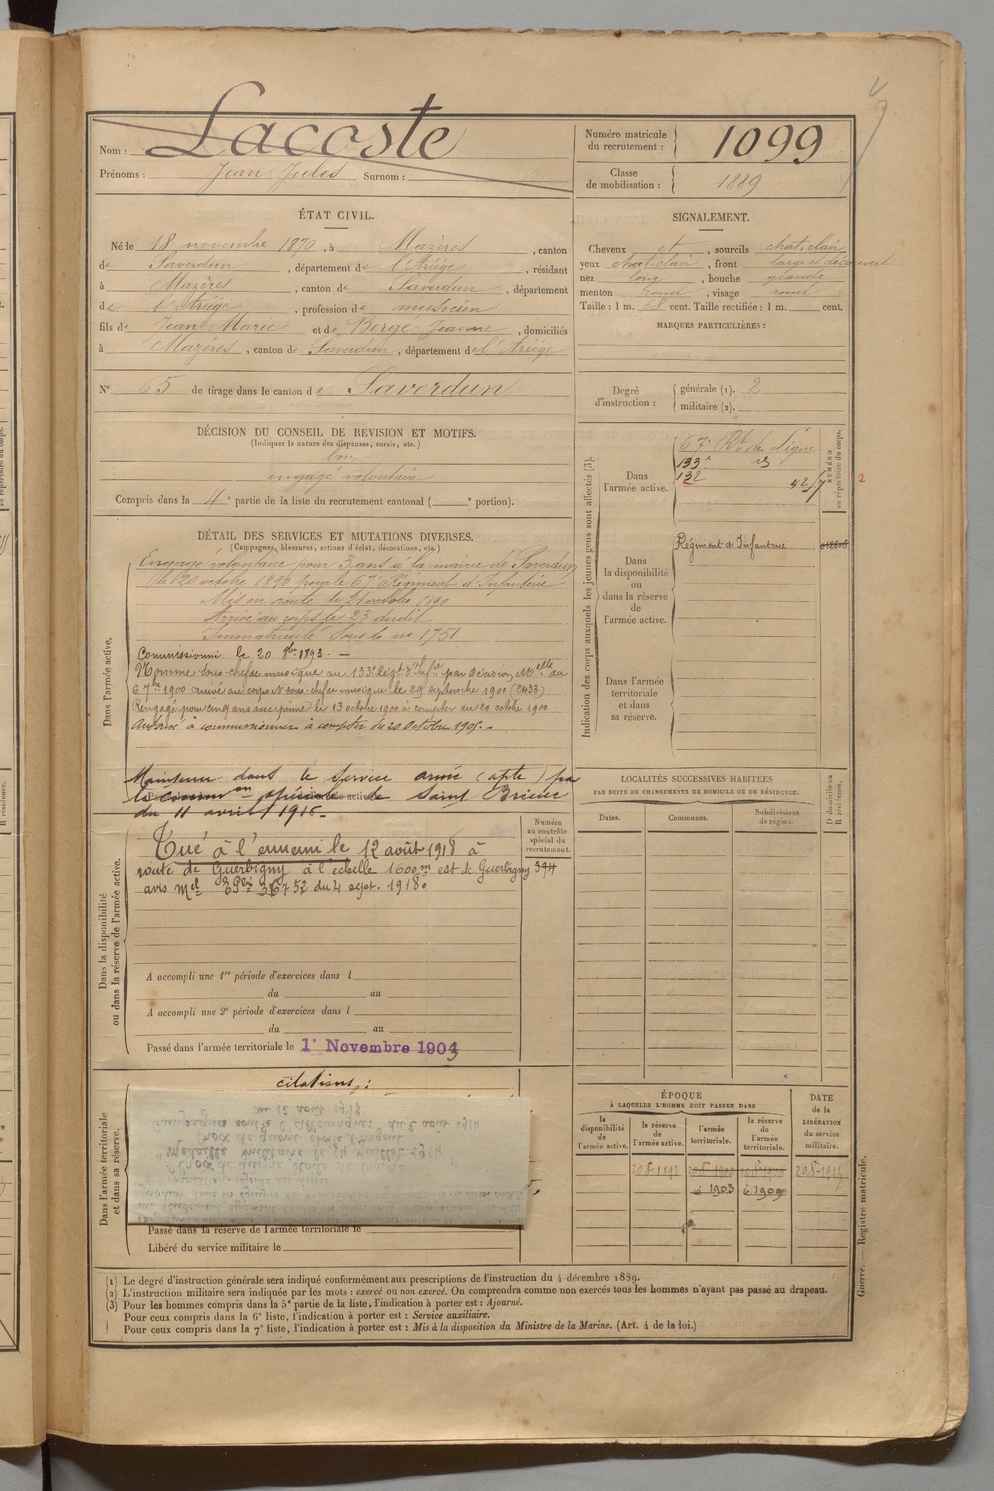 Nom : Lacoste
Prénoms : Jean Jules Surnom :
Numéro matricule du recrutement : 1099
Classe de mobilisation : 1889
ÉTAT CIVIL.
Né le 18 novembre 1870, à Mazères, canton
de Saverdun, département de l'Ariége, résidant
à Mazères, canton de Saverdun, département
de l'Ariége, profession de musicien
fils de Jean Marie et de Berge Jeanne, domiciliés
à Mazères, canton de Saverdun, département de l'Ariége
N° 65 de tirage dans le canton de Saverdun
SIGNALEMENT.
Cheveux et, sourcils chat. clair
yeux chat. clair, front large et découvert
nez long, bouche grande
menton rond, visage rond
Taille : 1 m. 68 cent. Taille rectifiée : 1 m. cent.
MARQUES PARTICULIÈRES :
Degré d'instruction : générale (1). 2
militaire (2).
DÉCISION DU CONSEIL DE REVISION ET MOTIFS.
(Indiquer la nature des dispenses, sursis, etc.)
bon
engagé volontaire
Compris dans la 4e partie de la liste du recrutement cantonal ( e portion).
DÉTAIL DES SERVICES ET MUTATIONS DIVERSES.
(Campagnes, blessures, actions d'éclat, décorations, etc.)
Dans l'armée active.
Engagé volontaire pour 3 ans à la mairie de Saverdun
le 20 octobre 1890 pour le 67e Régiment d'Infanterie
Mis en route le 21 octobre 1890
Arrivé au corps le 23 dudit
Immatriculé sous le no 1751
Commissionné le 20 8bre 1893. —
Nommé sous-chef de musique au 133e Régt d'Infie par Décision Mlle du
6 7bre 1900 arrivé au corps et sous-chef de musique le 20 septembre 1900
Rengagé pour cinq ans avec prime le 13 octobre 1900 à compter du 20 octobre 1900
Autorisé à commissionner à compter du 20 Octobre 1905. -
Maintenu dans le service armé (apte) par
la Common spéciale de Saint Brieuc
du 11 avril 1916.-
Dans la disponibilité ou dans la réserve de l'armée active.
Numéro au contrôle spécial du recrutement.
Tué à l'ennemi le 12 août 1918 à
route de Guerbigny à l'échelle 1600m est de Guerbigny 394
avis Mel 752 du 4 sept. 1918.
A accompli une 1re période d'exercices dans l
du au
A accompli une 2e période d'exercices dans l
du au
Passé dans l'armée territoriale le 1er Novembre 1903
Dans l'armée territoriale et dans sa réserve.
citations :
Passé dans la réserve de l'armée territoriale le
Libéré du service militaire le
Indication des corps auxquels les jeunes gens sont affectés (3).
NUMÉRO au répertoire du corps.
Dans l'armée active.
67e Rt de Ligne
133e
132 42/7 2
Dans la disponibilité ou dans la réserve de l'armée active.
Régiment d'Infanterie
Dans l'armée territoriale et dans sa réserve.
LOCALITÉS SUCCESSIVES HABITÉES
PAR SUITE DE CHANGEMENTS DE DOMICILE OU DE RÉSIDENCE.
Dates. Communes. Subdivisions de région. D domicile ou R résidence.
ÉPOQUE
À LAQUELLE L'HOMME DOIT PASSER DANS
la disponibilité de l'armée active. la réserve de l'armée active. l'armée territoriale. la réserve de l'armée territoriale.
DATE de la LIBÉRATION du service militaire.
20 8 1893
1903 1909
(1) Le degré d'instruction générale sera indiqué conformément aux prescriptions de l'instruction du 4 décembre 1889.
(2) L'instruction militaire sera indiquée par les mots : exercé ou non exercé. On comprendra comme non exercés tous les hommes n'ayant pas passé au drapeau.
(3) Pour les hommes compris dans la 5e partie de la liste, l'indication à porter est : Ajourné.
Pour ceux compris dans la 6e liste, l'indication à porter est : Service auxiliaire.
Pour ceux compris dans la 7e liste, l'indication à porter est : Mis à la disposition du Ministre de la Marine. (Art. 4 de la loi.)
Guerre. — Registre matricule.